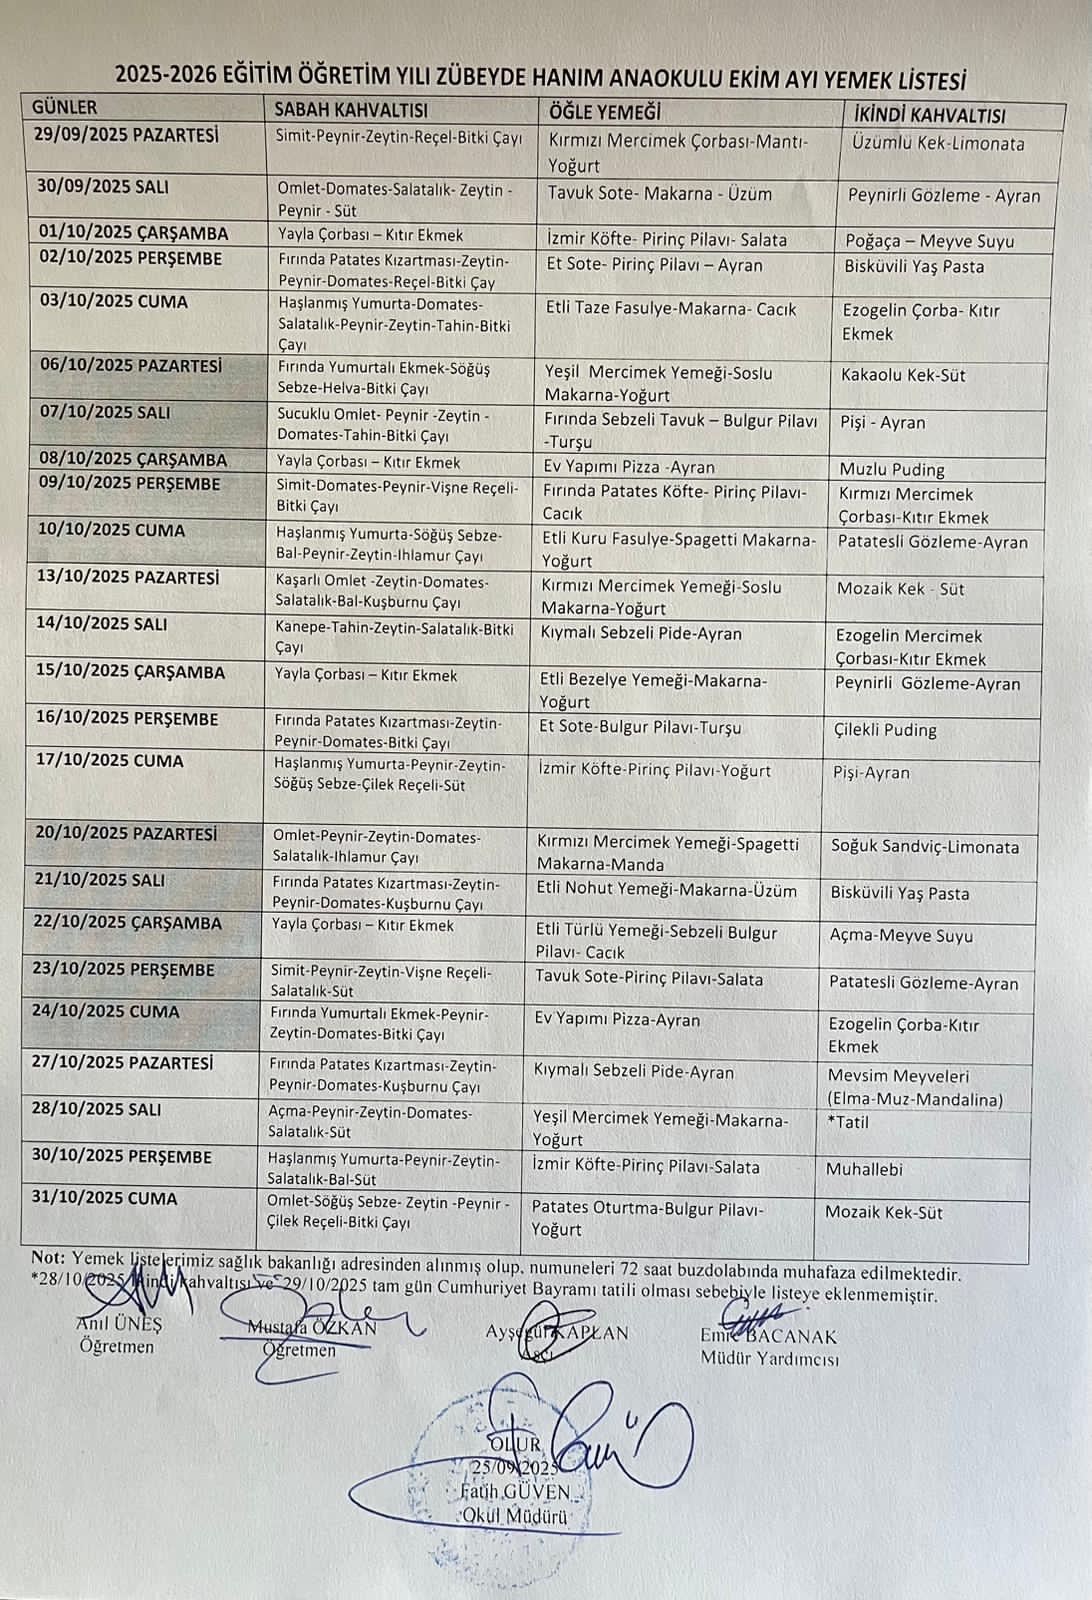 2025-2026 EĞİTİM ÖĞRETİM YILI ZÜBEYDE HANIM ANAOKULU EKİM AYI YEMEK LİSTESİ
GÜNLER SABAH KAHVALTISI ÖĞLE YEMEĞİ İKİNDİ KAHVALTISI
29/09/2025 PAZARTESİ Simit-Peynir-Zeytin-Reçel-Bitki Çayı Kırmızı Mercimek Çorbası-Mantı- Üzümlü Kek-Limonata
Yoğurt
30/09/2025 SALI Omlet-Domates-Salatalık- Zeytin - Tavuk Sote- Makarna - Üzüm Peynirli Gözleme - Ayran
Peynir - Süt
01/10/2025 ÇARŞAMBA Yayla Çorbası – Kıtır Ekmek İzmir Köfte- Pirinç Pilavı- Salata Poğaça – Meyve Suyu
02/10/2025 PERŞEMBE Fırında Patates Kızartması-Zeytin- Et Sote- Pirinç Pilavı – Ayran Bisküvili Yaş Pasta
Peynir-Domates-Reçel-Bitki Çay
03/10/2025 CUMA Haşlanmış Yumurta-Domates- Etli Taze Fasulye-Makarna- Cacık Ezogelin Çorba- Kıtır
Salatalık-Peynir-Zeytin-Tahin-Bitki Ekmek
Çayı
06/10/2025 PAZARTESİ Fırında Yumurtalı Ekmek-Söğüş Yeşil Mercimek Yemeği-Soslu Kakaolu Kek-Süt
Sebze-Helva-Bitki Çayı Makarna-Yoğurt
07/10/2025 SALI Sucuklu Omlet- Peynir -Zeytin - Fırında Sebzeli Tavuk – Bulgur Pilavı Pişi - Ayran
Domates-Tahin-Bitki Çayı -Turşu
08/10/2025 ÇARŞAMBA Yayla Çorbası – Kıtır Ekmek Ev Yapımı Pizza -Ayran Muzlu Puding
09/10/2025 PERŞEMBE Simit-Domates-Peynir-Vişne Reçeli- Fırında Patates Köfte- Pirinç Pilavı- Kırmızı Mercimek
Bitki Çayı Cacık Çorbası-Kıtır Ekmek
10/10/2025 CUMA Haşlanmış Yumurta-Söğüş Sebze- Etli Kuru Fasulye-Spagetti Makarna- Patatesli Gözleme-Ayran
Bal-Peynir-Zeytin-Ihlamur Çayı Yoğurt
13/10/2025 PAZARTESİ Kaşarlı Omlet -Zeytin-Domates- Kırmızı Mercimek Yemeği-Soslu Mozaik Kek - Süt
Salatalık-Bal-Kuşburnu Çayı Makarna-Yoğurt
14/10/2025 SALI Kanepe-Tahin-Zeytin-Salatalık-Bitki Kıymalı Sebzeli Pide-Ayran Ezogelin Mercimek
Çayı Çorbası-Kıtır Ekmek
15/10/2025 ÇARŞAMBA Yayla Çorbası – Kıtır Ekmek Etli Bezelye Yemeği-Makarna- Peynirli Gözleme-Ayran
Yoğurt
16/10/2025 PERŞEMBE Fırında Patates Kızartması-Zeytin- Et Sote-Bulgur Pilavı-Turşu Çilekli Puding
Peynir-Domates-Bitki Çayı
17/10/2025 CUMA Haşlanmış Yumurta-Peynir-Zeytin- İzmir Köfte-Pirinç Pilavı-Yoğurt Pişi-Ayran
Söğüş Sebze-Çilek Reçeli-Süt
20/10/2025 PAZARTESİ Omlet-Peynir-Zeytin-Domates- Kırmızı Mercimek Yemeği-Spagetti Soğuk Sandviç-Limonata
Salatalık-Ihlamur Çayı Makarna-Manda
21/10/2025 SALI Fırında Patates Kızartması-Zeytin- Etli Nohut Yemeği-Makarna-Üzüm Bisküvili Yaş Pasta
Peynir-Domates-Kuşburnu Çayı
22/10/2025 ÇARŞAMBA Yayla Çorbası – Kıtır Ekmek Etli Türlü Yemeği-Sebzeli Bulgur Açma-Meyve Suyu
Pilavı- Cacık
23/10/2025 PERŞEMBE Simit-Peynir-Zeytin-Vişne Reçeli- Tavuk Sote-Pirinç Pilavı-Salata Patatesli Gözleme-Ayran
Salatalık-Süt
24/10/2025 CUMA Fırında Yumurtalı Ekmek-Peynir- Ev Yapımı Pizza-Ayran Ezogelin Çorba-Kıtır
Zeytin-Domates-Bitki Çayı Ekmek
27/10/2025 PAZARTESİ Fırında Patates Kızartması-Zeytin- Kıymalı Sebzeli Pide-Ayran Mevsim Meyveleri
Peynir-Domates-Kuşburnu Çayı (Elma-Muz-Mandalina)
28/10/2025 SALI Açma-Peynir-Zeytin-Domates- Yeşil Mercimek Yemeği-Makarna- *Tatil
Salatalık-Süt Yoğurt
30/10/2025 PERŞEMBE Haşlanmış Yumurta-Peynir-Zeytin- İzmir Köfte-Pirinç Pilavı-Salata Muhallebi
Salatalık-Bal-Süt
31/10/2025 CUMA Omlet-Söğüş Sebze- Zeytin -Peynir - Patates Oturtma-Bulgur Pilavı- Mozaik Kek-Süt
Çilek Reçeli-Bitki Çayı Yoğurt
Not: Yemek listelerimiz sağlık bakanlığı adresinden alınmış olup, numuneleri 72 saat buzdolabında muhafaza edilmektedir.
*28/10/2025 İkindi kahvaltısı ve 29/10/2025 tam gün Cumhuriyet Bayramı tatili olması sebebiyle listeye eklenmemiştir.
Anıl ÜNEŞ Mustafa ÖZKAN Ayşegül KAPLAN Emre BACANAK
Öğretmen Öğretmen Aşçı Müdür Yardımcısı
OLUR
25/09/2025
Fatih GÜVEN
Okul Müdürü